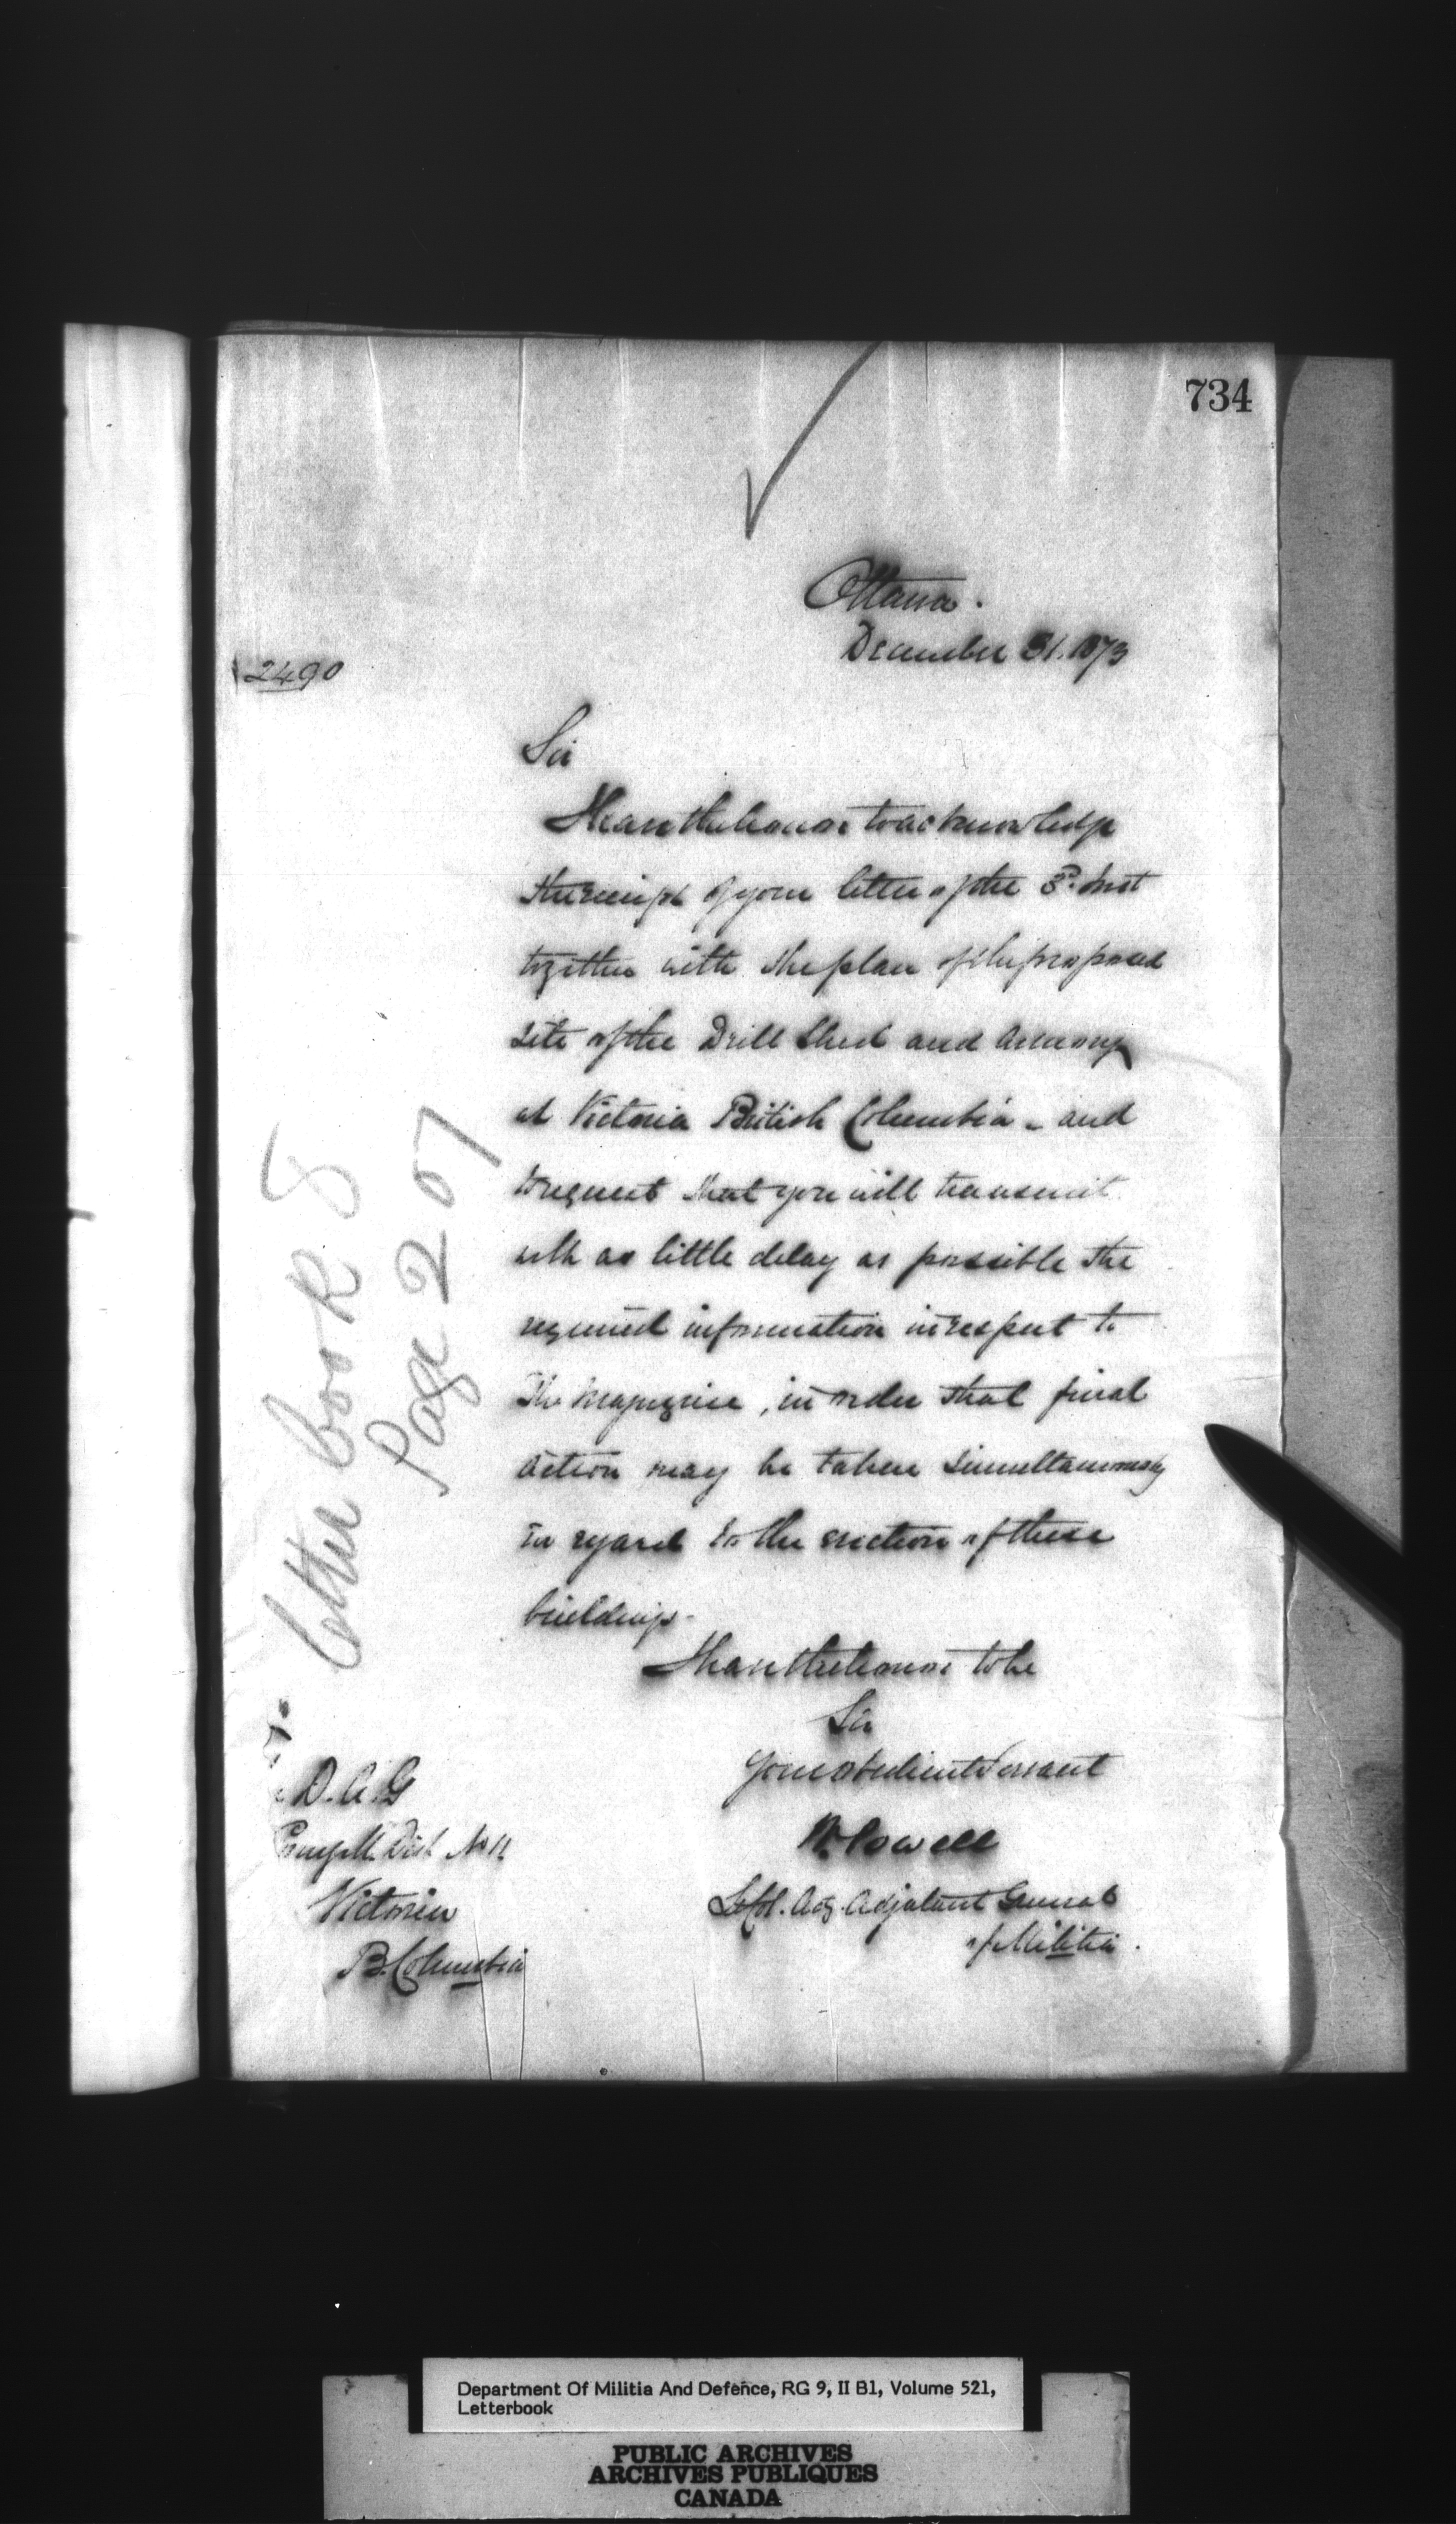 734
Ottawa.
December 31. 1873
2490
Sir
I have the honor to acknowledge
the receipt of your letter of the 3d. Inst
together with the plan of the proposed
site of the Drill Shed and Armoury
at Victoria British Columbia - and
to request that you will transmit
with as little delay as possible the
required information in respect to
the Magazine, in order that final
action may be taken simultaneously
in regard to the erection of these
buildings.
I have the honor to be
Sir
Your obedient Servant
W. Powell
Lt Col. Adj. Adjutant General
of Militia.
D.A.G
Comg M. Dist No 11
Victoria
B. Columbia
Letter book 8
Page 207
Department Of Militia And Defence, RG 9, II B1, Volume 521,
Letterbook
PUBLIC ARCHIVES
ARCHIVES PUBLIQUES
CANADA